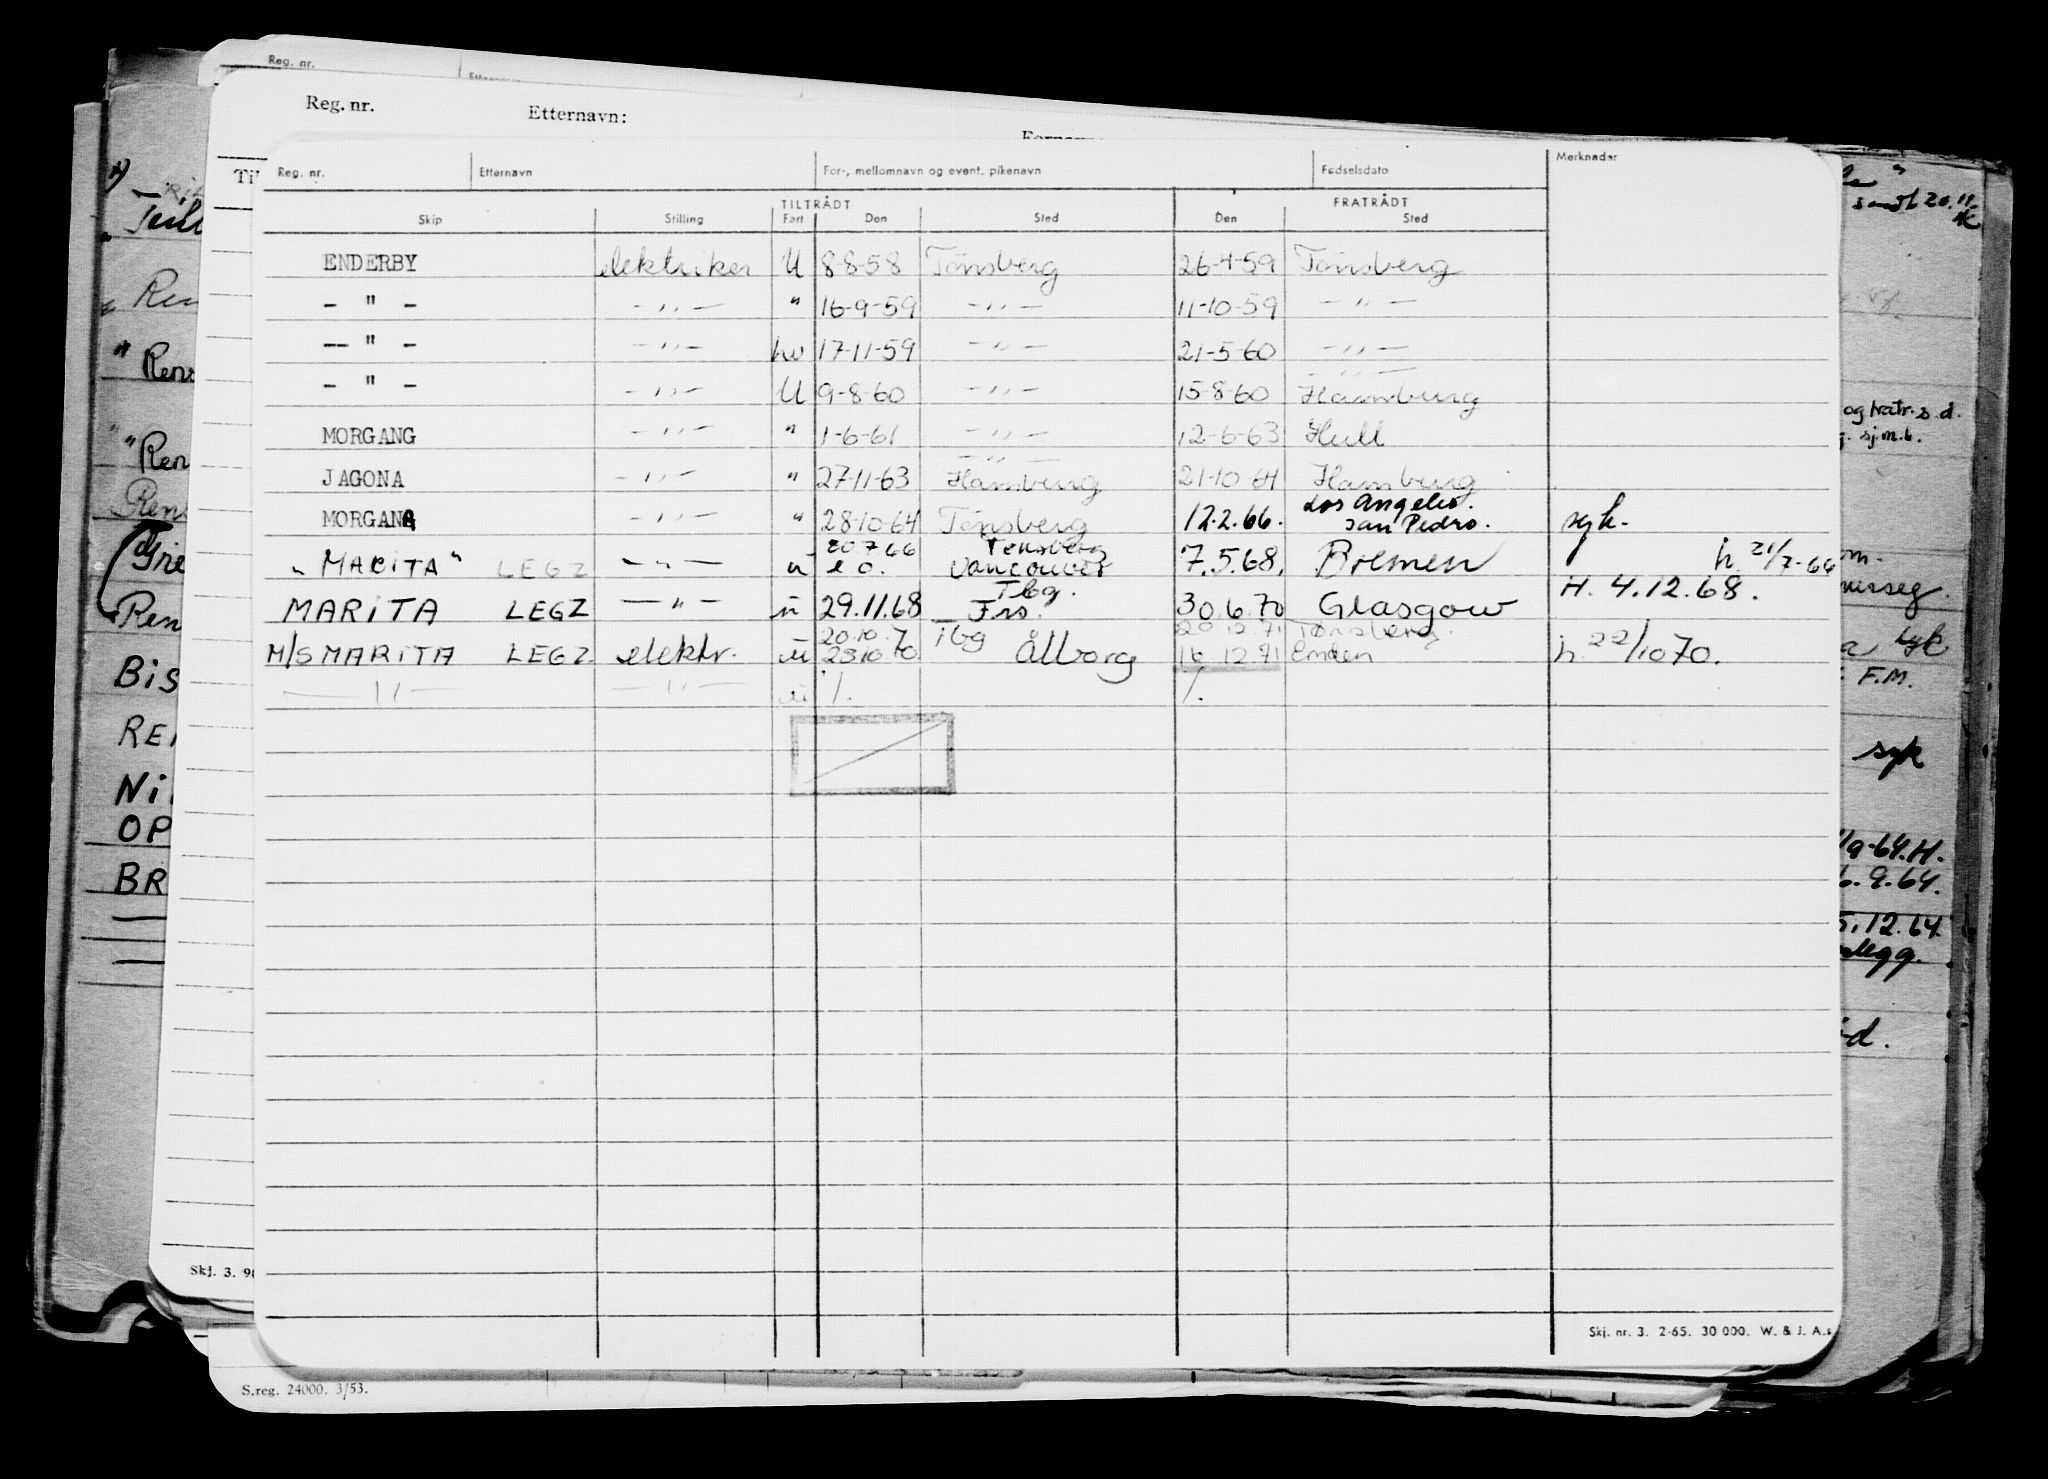 Reg. nr.
Reg. nr. Etternavn:
Reg. nr. Etternavn For-, mellomnavn og event. pikenavn Fødselsdato Merknader
TILTRÅDT FRATRÅDT
Skip Stilling Fart Den Sted Den Sted
ENDERBY elektriker U 8-8-58 Tønsberg 26-4-59 Tønsberg
- " - - " - " 16-9-59 - " - 11-10-59 - " -
- " - - " - hv 17-11-59 - " - 21-5-60 - " -
- " - - " - U 9-8-60 - " - 15-8-60 Hamburg
MORGANG - " - " 1-6-61 - " - 12-6-63 Hull
JAGONA - " - " 27-11-63 Hamburg 21-10-64 Hamburg
MORGANA - " - " 28-10-64 Tønsberg 12.2.66. Los Angeles. San Pedro. syk.
20.7.66 Tønsberg
"MARITA" LEGZ - " - u Vancouver 7.5.68. Bremen h. 21/7-66
MARITA LEGZ - " - u 29.11.68 Tbg. Frs. 30.6.70 Glasgow H. 4.12.68.
20.10.7 20.12.71 Tønsberg.
M/S MARITA LEGZ. elektr. u 23.10.70. Tbg Ålborg 16.12.71 Emden h. 22/10 70.
- " - - " - u /. /.
Skj. nr. 3. 2-65. 30 000. W. & J. A.s
Skj. 3.
S.reg. 24000. 3/53.
Bis
Ni
OP
BR
sendt 20.11.
og fratr. s.d.
sj.m.b.
syk
F.M.
syk
9-64.H.
6.9.64.
5.12.64.